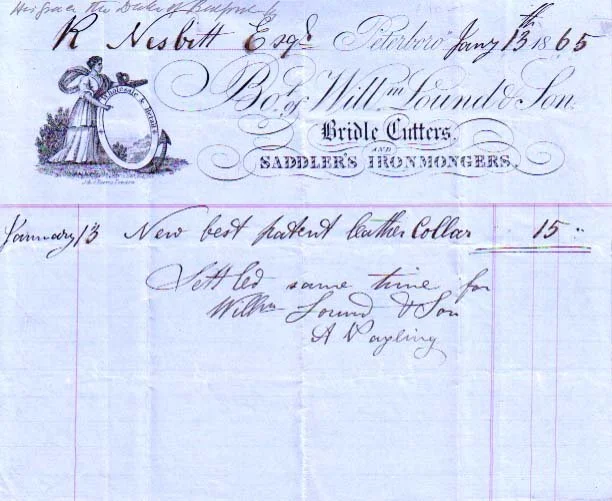 His grace the Duke of Bedford
R Nesbitt Esqr Peterboro' Jany 13th 1865
Bot. of Willm. Lound & Son.
Wholesale & Retail
Bridle Cutters,
AND
SADDLER'S IRONMONGERS.
January 13 New best patent leather Collar 15 "
Settled same time for
Willm Lound & Son
A Payling